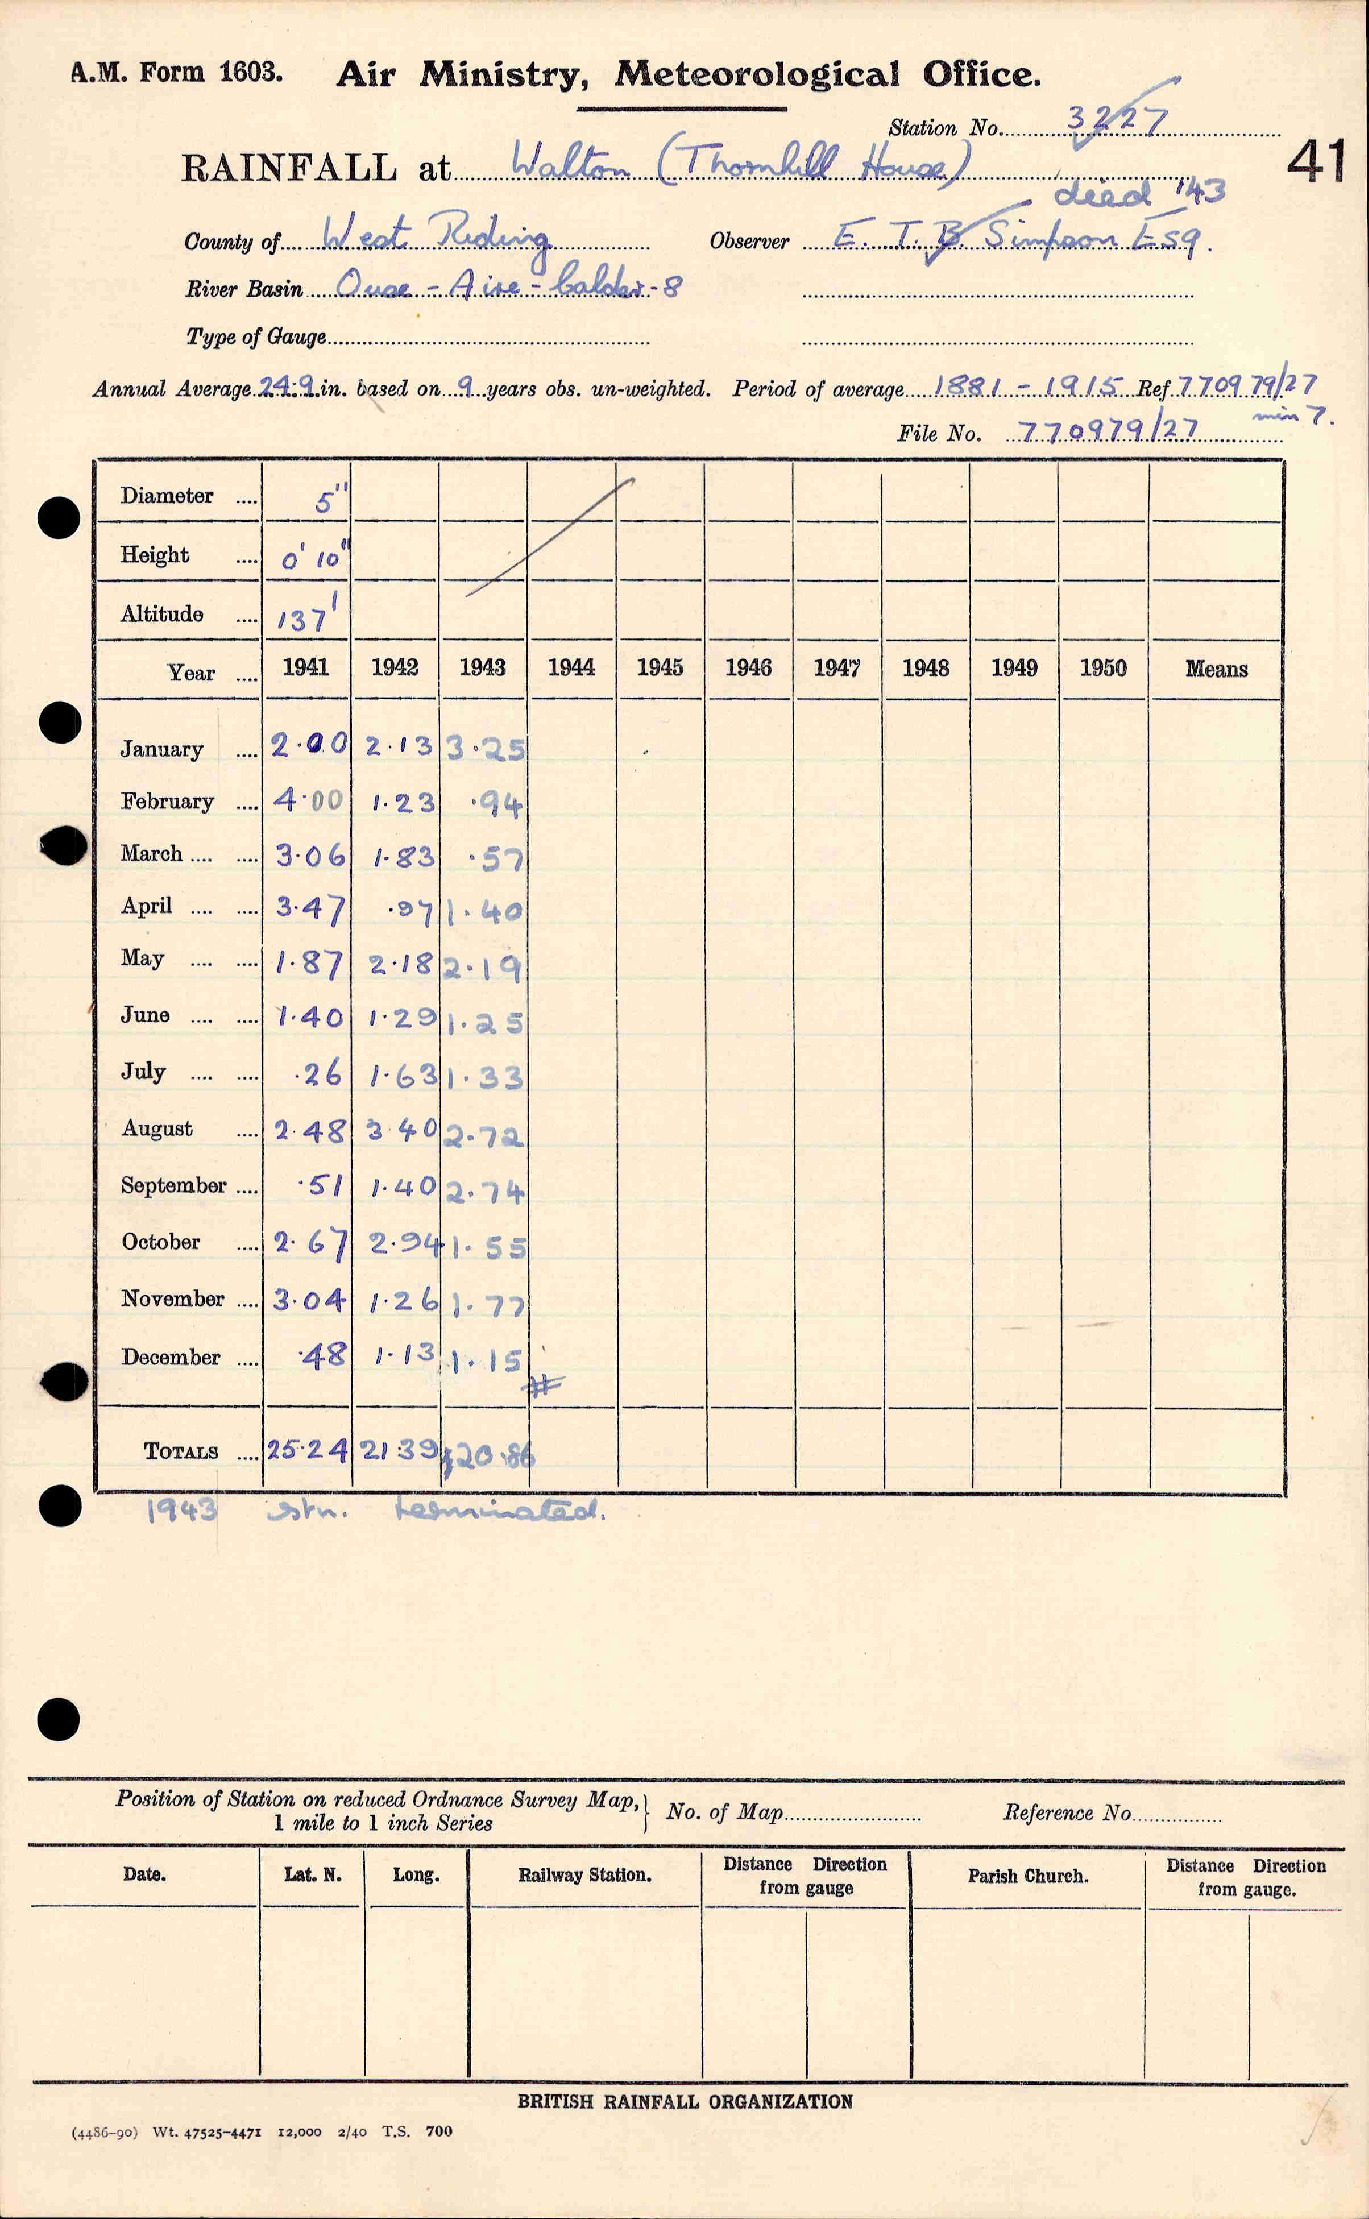 A.M. Form 1603. Air Ministry, Meteorological Office.
Station No. 3227
41
RAINFALL at Walton (Thornhill House)
died '43
County of West Riding Observer E. T. B. Simpson Esq.
River Basin Ouse - Aire - Calder - 8
Type of Gauge
Annual Average 24.9 in. based on 9 years obs. un-weighted. Period of average 1881 - 1915 Ref 770979/27
min 7.
File No. 770979/27
Diameter .... 5"
Height .... 0' 10"
Altitude .... 137'
Year .... 1941 1942 1943 1944 1945 1946 1947 1948 1949 1950 Means
January .... 2.00 2.13 3.25
February .... 4.00 1.23 .94
March .... .... 3.06 1.83 .57
April .... .... 3.47 .97 1.40
May .... .... 1.87 2.18 2.19
June .... .... 1.40 1.29 1.25
July .... .... .26 1.63 1.33
August .... 2.48 3.40 2.72
September .... .51 1.40 2.74
October .... 2.67 2.94 1.55
November .... 3.04 1.26 1.77
December .... .48 1.13 1.15
#
TOTALS .... 25.24 21.39 20.86
1943 stn. terminated.
Position of Station on reduced Ordnance Survey Map, 1 mile to 1 inch Series } No. of Map Reference No
Date. Lat. N. Long. Railway Station. Distance Direction from gauge Parish Church. Distance Direction from gauge.
BRITISH RAINFALL ORGANIZATION
(4486-90) Wt. 47525-4471 12,000 2/40 T.S. 700